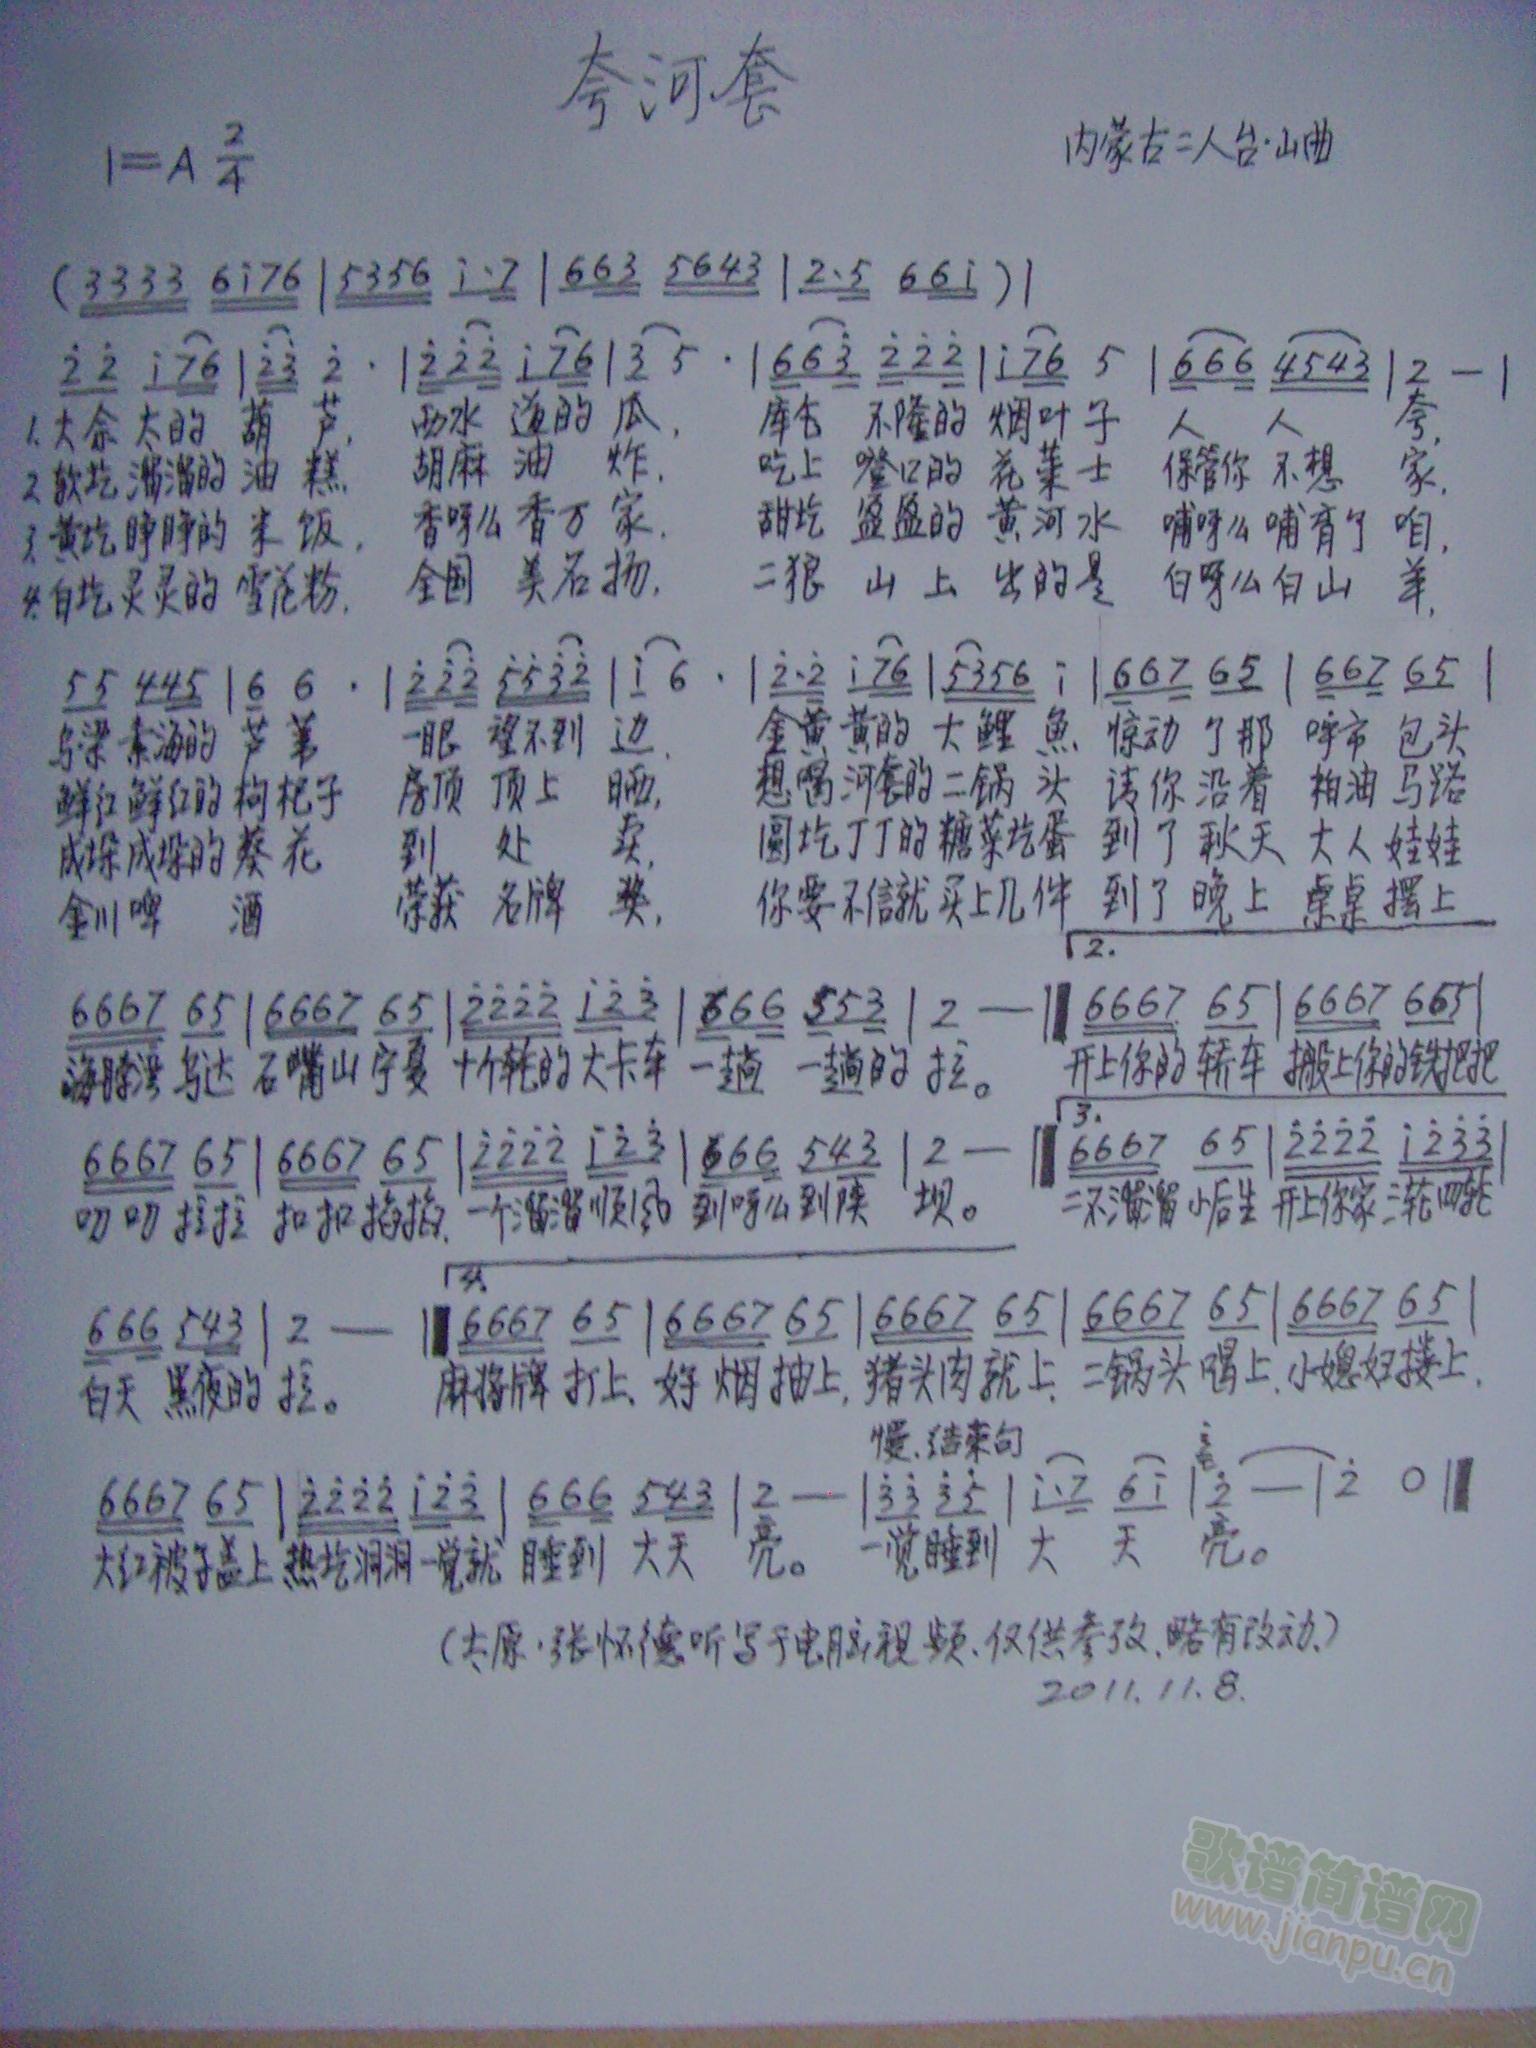 夸河套
1=A 2/4
内蒙古二人台·山曲
(3333 6i76 | 5356 i·7 | 663 5643 | 2·5 66i ) |
2̇2̇ i76 | 2̇3̇ 2̇· | 2̇2̇2̇ i76 | 3 5· | 663̇ 2̇2̇2̇ | i76 5 | 666 4543 | 2 — |
1. 大佘太的 葫芦, 西水道的瓜, 库仑不隆的烟叶子 人人夸,
2. 软圪溜溜的油糕 胡麻油炸, 吃上噔口的花莱士 保管你不想家,
3. 黄圪睁睁的米饭, 香呀么香万家, 甜圪盈盈的黄河水 哺呀么哺育了咱,
4. 白圪灵灵的雪花粉, 全国美名扬, 二狼山上出的是 白呀么白山羊,
55 445 | 6 6· | 2̇2̇2̇ 5̇5̇3̇2̇ | i 6· | 2̇·2̇ i76 | 5356 i | 667 65 | 667 65 |
乌梁素海的芦苇 一眼望不到边, 金黄黄的大鲤魚 惊动了那 呼市包头
鲜红鲜红的枸杞子 房顶顶上晒, 想喝河套的二锅头 请你沿着柏油马路
成垛成垛的葵花 到处卖, 圆圪丁丁的糖菜圪蛋 到了秋天大人娃娃
金川啤酒 荣获名牌奖, 你要不信就买上几件 到了晚上桌桌摆上
2.
6667 65 | 6667 65 | 2̇2̇2̇2̇ i2̇3̇ | 666 553 | 2 — | 6667 65 | 6667 665 |
海脖湾乌达 石嘴山宁夏 十个轮的大卡车 一趟一趟的拉。 开上你的轿车 搬上你的铁把把
3.
6667 65 | 6667 65 | 2̇2̇2̇2̇ i2̇3̇ | 666 543 | 2 — | 6667 65 | 2̇2̇2̇2̇ i2̇3̇3̇ |
叨叨拉拉 扣扣掐掐, 一个溜溜顺风 到呀么到陕坝。 二不溜溜小后生 开上你家三轮四轮
4.
666 543 | 2 — | 6667 65 | 6667 65 | 6667 65 | 6667 65 | 6667 65 |
白天黑夜的拉。 麻将牌打上, 好烟抽上, 猪头肉就上, 二锅头喝上, 小媳妇搂上,
慢、结束句
6667 65 | 2̇2̇2̇2̇ i2̇3̇ | 666 543 | 2 — | 3̇3̇ 3̇5̇ | i·7 6i | 2̇ — | 2̇ 0 |
大红被子盖上 热圪洞洞一觉就 睡到大天亮。 一觉睡到大天亮。
(太原·张怀德听写于电脑视频、仅供参考、略有改动)
2011.11.8.
歌谱简谱网
www.jianpu.cn